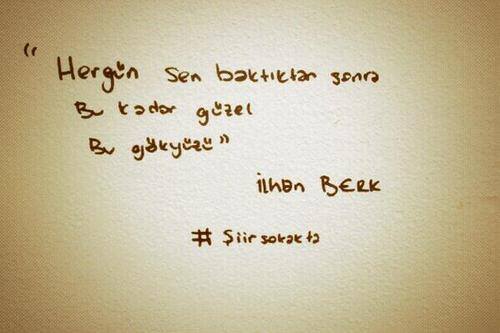 “ Hergün sen baktıktan sonra
Bu kadar güzel
Bu gökyüzü”
İlhan BERK
# Şiirsokakta